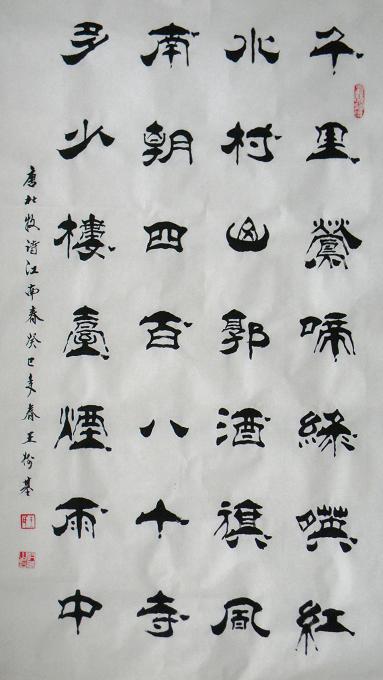 千里鶯啼綠暎紅
水村山郭酒旗風
南朝四百八十寺
多少樓臺煙雨中
唐杜牧詩江南春癸巳年春王基